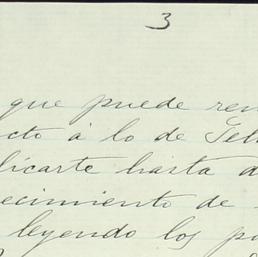 3
que puede ren
cto á lo de Tel
licarte hasta d
ecimiento de
leyendo los pa